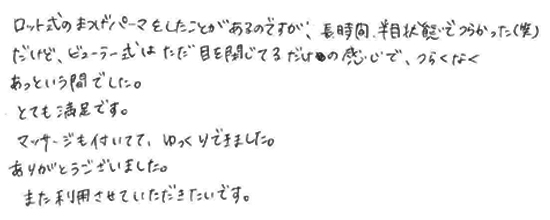 ロット式のまつげパーマをしたことがあるのですが、長時間、半目状態でつらかった(笑)
だけど、ビューラー式はただ目を閉じてるだけの感じで、つらくなく
あっという間でした。
とても満足です。
マッサージも付いてて、ゆっくりできました。
ありがとうございました。
また利用させていただきたいです。